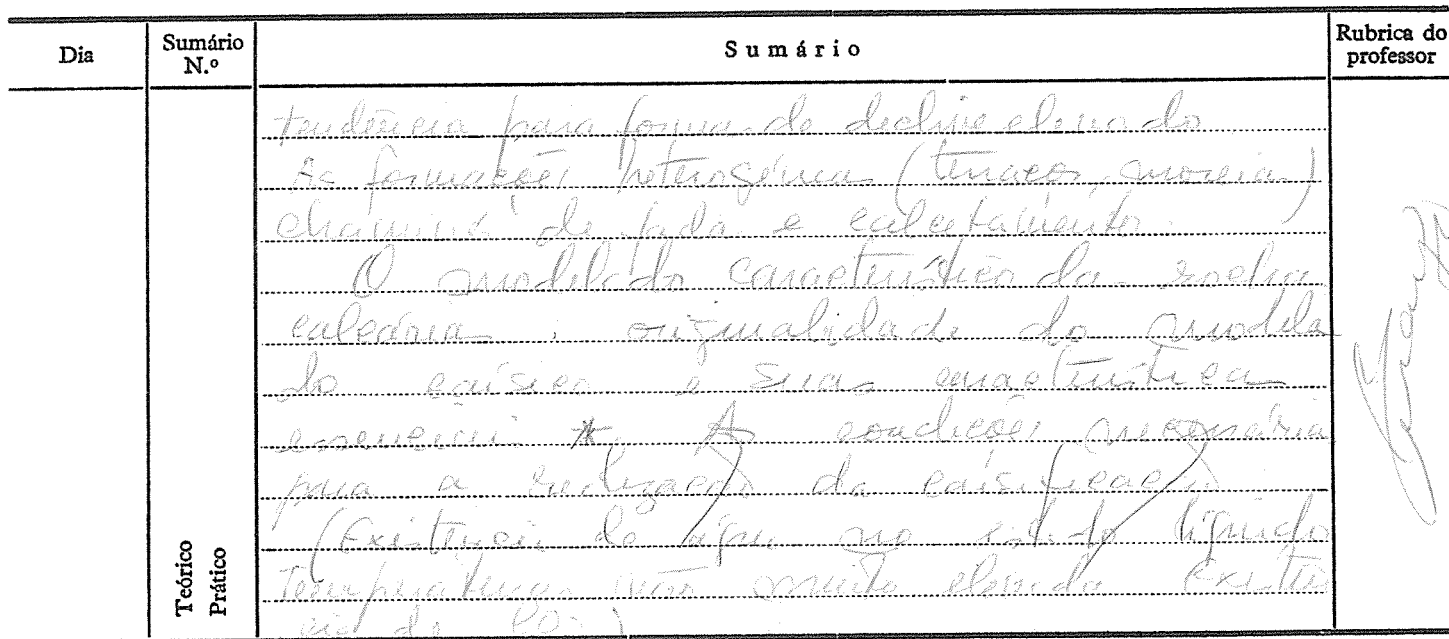 Dia
Sumário N.º
Sumário
Rubrica do professor
tendência para formas de declive elevado
As formações heterogéneas (terraços, moreias)
chaminés de fada e
O modelado característico da rocha
calcária: originalidade do modela
do cársico e suas características
essenciais. As condições necessárias
para a realização da carsificação
(Existência de água no estado líquido
temperaturas não muito elevadas Existên
cia de CO2)
Teórico
Prático